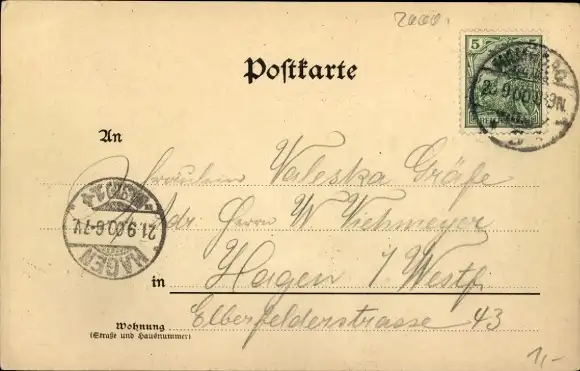 2000.
Postkarte
5
An
Fräulein Valeska Gräfe
Adr. Herrn W Viehmeyer
in Hagen i/Westf.
Elberfelderstrasse 43
Wohnung
(Straße und Hausnummer)
HAGEN
21.9.00.6-7V
1,-